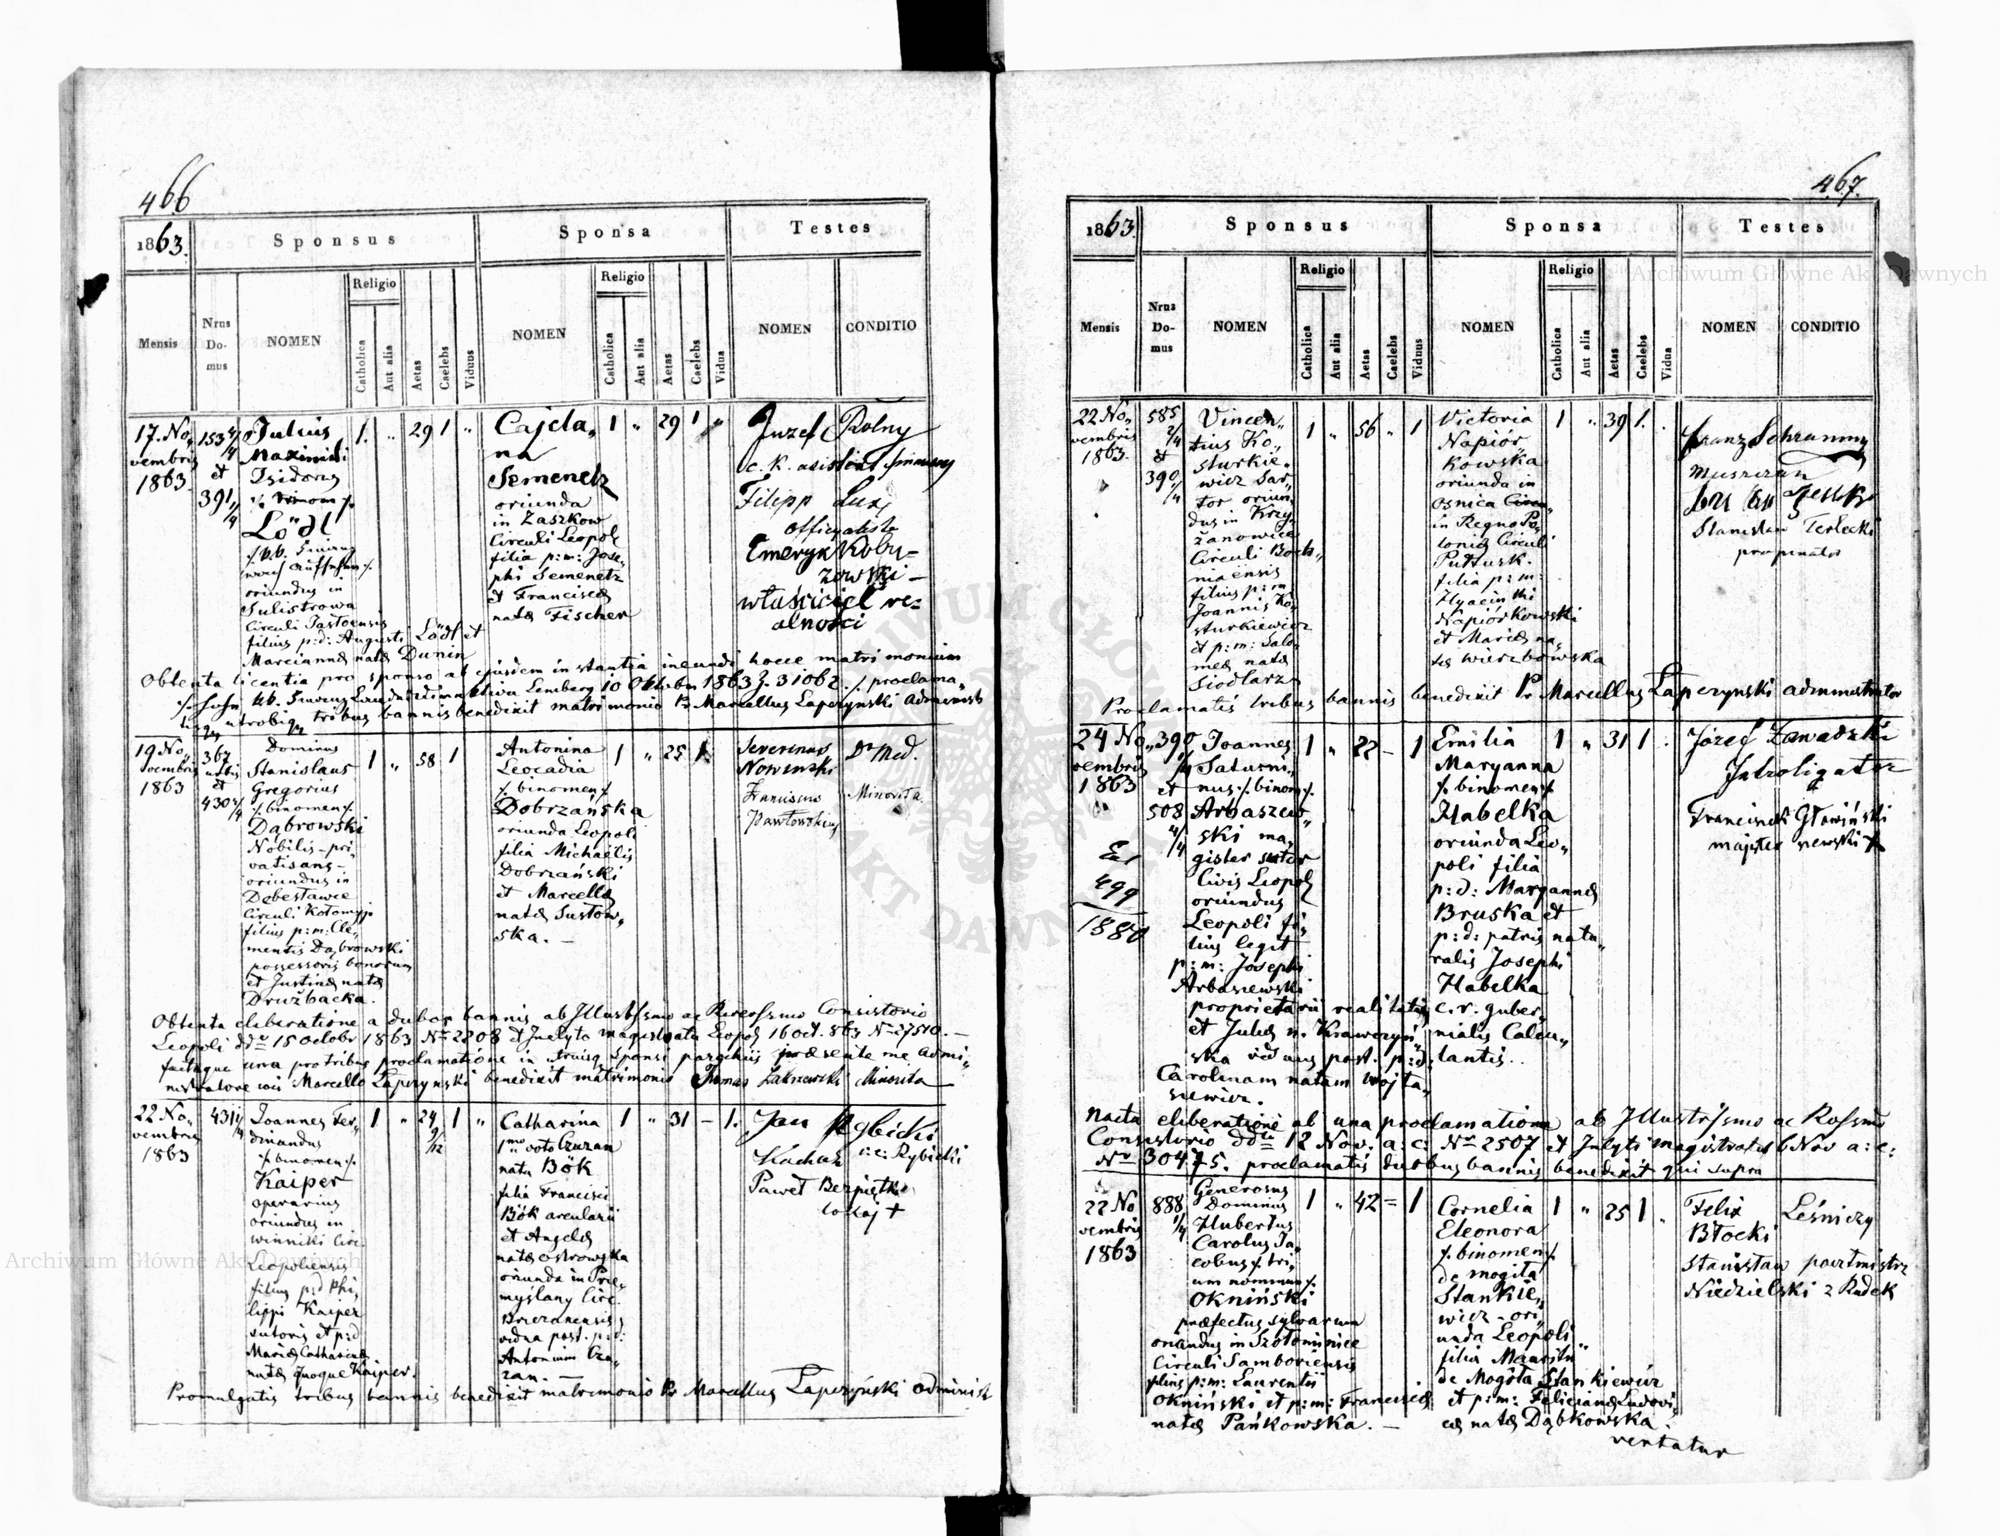 466
1863.
Sponsus
Sponsa
Testes
Mensis
Nrus Domus
NOMEN
Religio
Catholica
Aut alia
Aetas
Caelebs
Viduus
NOMEN
Religio
Catholica
Aut alia
Aetas
Caelebs
Vidua
NOMEN
CONDITIO
17. No„
vembris
1863
153 4/4
et
391/4
Julius
Maximili
Isidorus
Lödl
oriundus in
Sulistrowa
Circuli Jasloensis
filius p: d: Augusti Lödl et
Marciannæ natæ Dunin
1. „ 29 1 „
Cajeta„
na
Semenetz
oriunda
in Zaszkow
Circuli Leopol
filia p: m: Jose„
phi Semenetz
et Franciscæ
natæ Fischer
1 „ 29 1 „
Juzef Rolny
c. k. asistent
Filipp Lux
officyalista
Emeryk Kobu=
zowski –
właściciel re=
alności
Obtenta licentia pro sponso ab ejusdem instantia ineundi hocce matrimonium
Lemberg 10 Oktober 1863 Z. 31062 ./. proclama„
tis utrobiq tribus bannis benedixit matrimonio Pr Marcellus Łapczynski administ
19 No„
vembris
1863
367
urbis
et
430 2/4
Dominus
Stanislaus
Gregorius
./. binomen ./.
Dąbrowski
Nobilis – pri„
vatisans –
oriundus in
Debesławce
Circuli Kołomyj
filius p: m: Cle„
mentis Dąbrowski
possessoris bonorum
et Justinæ natæ
Družbacka.
1 „ 58 1
Antonina
Leocadia
./. binomen ./.
Dobrzańska
oriunda Leopoli
filia Michaëlis
Dobrzański
et Marcellæ
natæ Susłow„
ska. –
1 „ 25 1
Severinus
Nowinski
Dr Med.
Franciscus
Pawłowskius
Minorita
Obtenta eliberatione a duobus bannis ab Illustssmo ac Reverssmo Consistorio
Leopoli ddto 15 Octobr 1863 Nro 2208 et Inclyto magistratu Leopol 16 Oct. 863 Nro 27510. –
factaque una pro tribus proclamatione in utriusq sponsi parochiis præsente me admi„
nistratore loci Marcello Łapczynski benedixit matrimonio Thomas Zakrzewski Minorita
22 No„
vembris
1863
431 1/4
Joannes Fer„
dinandus
./. binomen ./.
Kaiper
operarius
oriundus in
Winniki Circ.
Leopoliensis
filius p: d Phi„
lippi Kaiper
sutoris et p: d
Mariæ Catharinæ
natæ quoque Kaiper.
1 „ 24 9/12 1 „
Catharina
1mo voto Czuzan
nata Bök
filia Francisci
Bök arcularii
et Angelæ
natæ Ostrowska
oriunda in Prze„
myślany Circ.
Brzezanensis,
vidua post. p: d:
Antonium Czu„
zan. –
1 „ 31 – 1.
Jan Rybicki
Kucharz v: c: Rybicki
Paweł Bezpiętko
lokaj +
Promulgatis tribus bannis benedixit matrimonio Pr Marcellus Łapczyński administ
467.
1863.
Sponsus
Sponsa
Testes
Mensis
Nrus Domus
NOMEN
Religio
Catholica
Aut alia
Aetas
Caelebs
Viduus
NOMEN
Religio
Catholica
Aut alia
Aetas
Caelebs
Vidua
NOMEN
CONDITIO
22 No„
vembris
1863.
585
2/4
et
390
1/4
Vincen„
tius Ko„
sturkie„
wicz Sar„
tor oriun„
dus in Krzy„
zanowice
Circuli Boch„
niaensis
filius p: m:
Joannis Ko„
sturkiewicz
et p: m: Salo„
meæ natæ
Siodlarz
1 „ 56 „ 1
Victoria
Napiór„
kowska
oriunda in
Osnica Circu„
in Regno Po„
loniæ Circuli
Pułtusk.
filia p: m:
Hyacinthi
Napiórkowski
et Mariæ na„
tæ Wierzbowska
1 „ 39 1.
Franz Schramm
Stanisław Terlecki
propinator
Proclamatis tribus bannis benedixit Pr Marcellus Łapczynski administrator
24 No„
vembris
1863
390
1/4
et
508
4/4
Ext
499
1880
Joannes
Saturni„
nus ./. binom ./.
Arbaszew„
ski ma„
gister sutor
Civis Leopol
oriundus
Leopoli fi„
lius legit
p: m: Josephi
Arbaszewski
proprietarii realitatis
et Juliæ n. Krawczyń„
ska viduus post. p: d:
Carolinam natam Wojta„
siewicz.
1 „ 22 – 1
Emilia
Maryanna
./. binomen ./.
Habelka
oriunda Leo„
poli filia
p: d: Maryannæ
Bruska et
p: d: patris natu„
ralis Josephi
Habelka
c. r. guber„
nialis Calcu„
lantis.
1 „ 31 1
Józef Zawadzki
Introligator
Franciszek Głowiński
majster szewski
Nacta eliberatione ab una proclamatione ab Illustrssmo ac Rssmo
Consistorio ddto 12 Nov. a: c: Nro 2507 et Inclyti magistratus 6 Nov a: c:
Nro 30475. proclamatis duobus bannis benedixit qui supra
22 No„
vembris
1863
888
1/4
Generosus
Dominus
Hubertus
Carolus Ja„
cobus ./. tri„
um nominum ./.
Okniński
præfectus sylvarum
oriundus in Szołomienice
Circuli Samboriensis
filius p: m: Laurentii
Okniński et p: m: Franciscæ
natæ Pańkowska. –
1 „ 42 = 1
Cornelia
Eleonora
./. binomen ./.
de Mogiła
Stankie„
wicz – ori„
unda Leopoli
filia Mauritii
de Mogiła Stankiewicz
et p: m: Felicianæ Ludovi„
cæ natæ Dąbkowska
vertatur
1 „ 25 1 „
Felix
Błocki
Leśniczy
Stanisław
Niedzielski
poczmistrz
z Rudek
Archiwum Główne Akt Dawnych
Archiwum Główne Akt Dawnych
ARCHIWUM GŁÓWNE AKT DAWNYCH